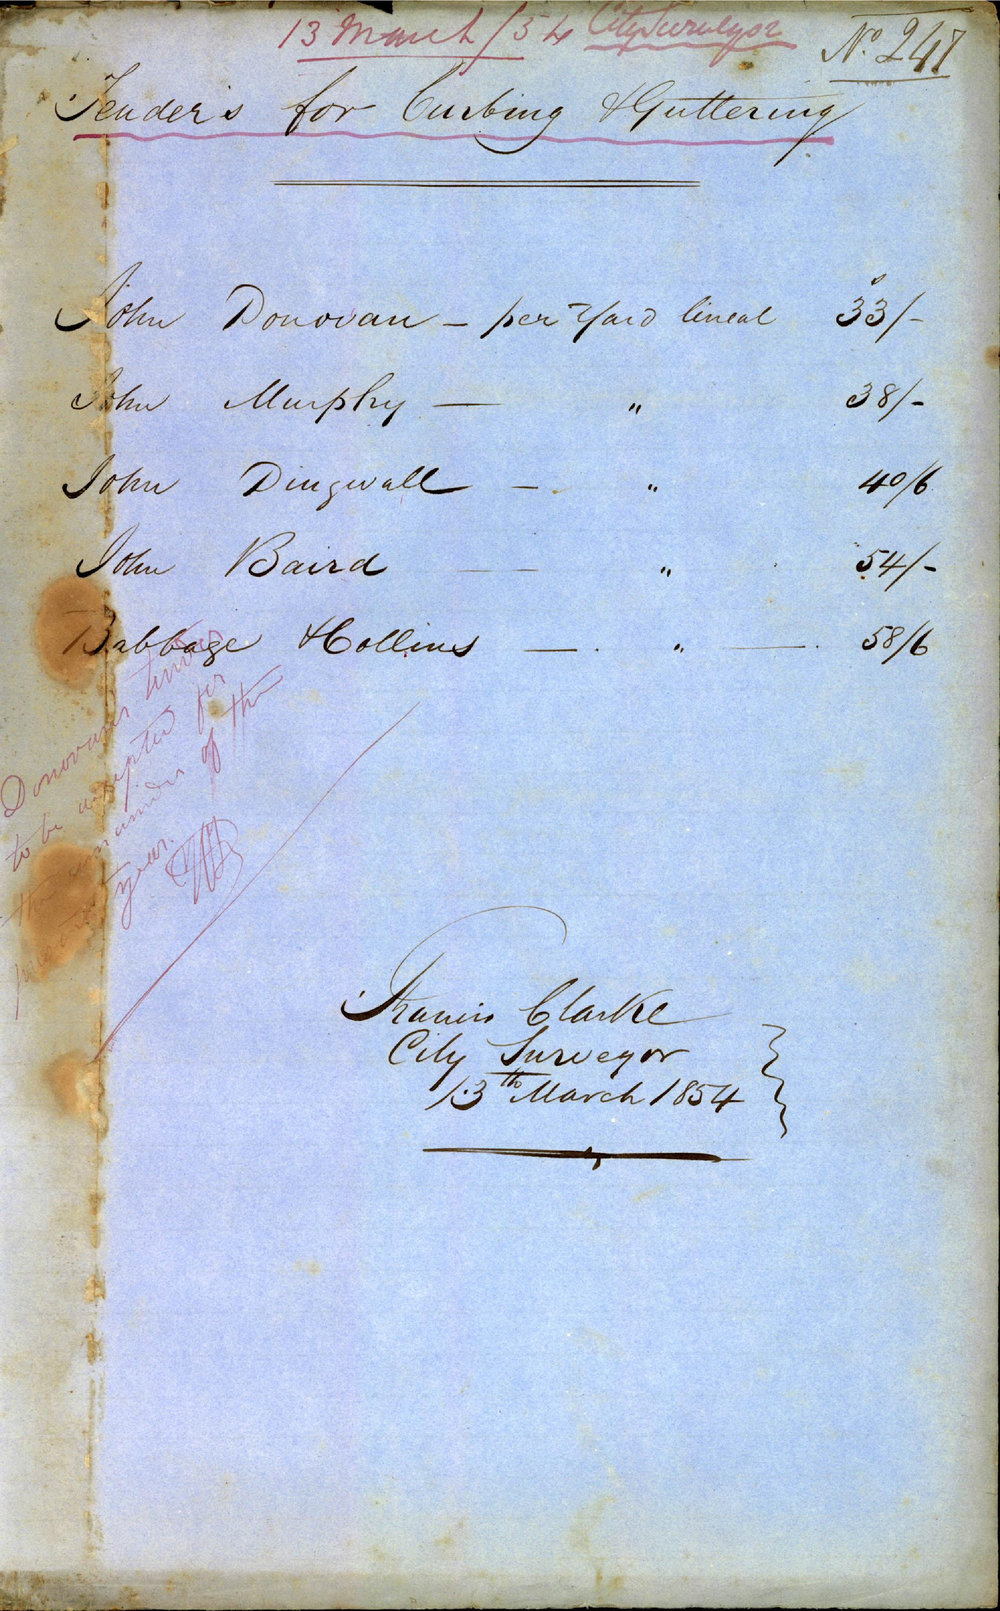 13 March/54 City Surveyor
No. 247
Tender's for Curbing & Guttering
John Donovan — per Yard lineal 33/-
s
John Murphy — " 38/-
John Dingwall — " 40/6
John Baird — — " 54/-
Babbage & Collins — " — 58/6
Donovan's tender
to be accepted for
the remainder of the
present year.
Francis Clarke
City Surveyor
13th March 1854